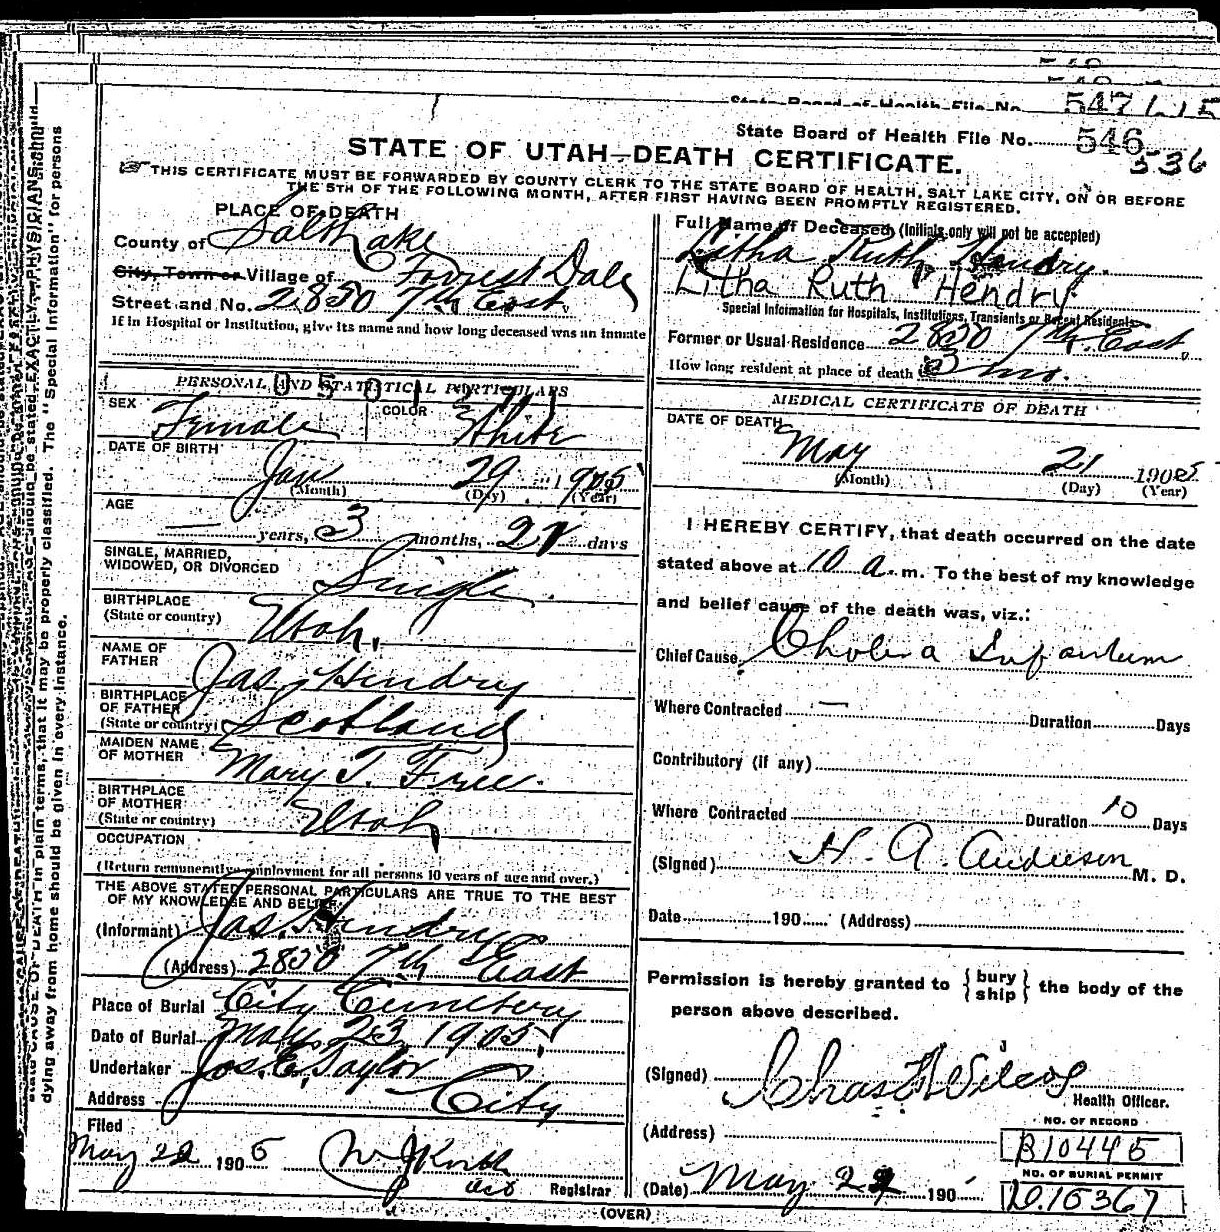 State Board of Health File No. 547
State Board of Health File No. 546
536
STATE OF UTAH—DEATH CERTIFICATE.
THIS CERTIFICATE MUST BE FORWARDED BY COUNTY CLERK TO THE STATE BOARD OF HEALTH, SALT LAKE CITY, ON OR BEFORE
THE 5TH OF THE FOLLOWING MONTH, AFTER FIRST HAVING BEEN PROMPTLY REGISTERED.
PLACE OF DEATH
County of Salt Lake
City, Town or Village of Forrest Dale
Street and No. 2850 7th East
If in Hospital or Institution, give its name and how long deceased was an inmate
Full Name of Deceased (Initials only will not be accepted)
Litha Ruth Hendry.
Litha Ruth Hendry
Special Information for Hospitals, Institutions, Transients or Recent Residents
Former or Usual Residence 2850 7th East
How long resident at place of death 3 mo.
PERSONAL AND STATISTICAL PARTICULARS
SEX Female COLOR White
DATE OF BIRTH
Jan 29 1905
(Month) (Day) (Year)
AGE
— years, 3 months, 21 days
SINGLE, MARRIED,
WIDOWED, OR DIVORCED Single
BIRTHPLACE
(State or country) Utah.
NAME OF
FATHER Jas. Hendry
BIRTHPLACE
OF FATHER
(State or country) Scotland
MAIDEN NAME
OF MOTHER Mary T. Free
BIRTHPLACE
OF MOTHER
(State or country) Utah
OCCUPATION
(Return remunerative employment for all persons 10 years of age and over.)
THE ABOVE STATED PERSONAL PARTICULARS ARE TRUE TO THE BEST
OF MY KNOWLEDGE AND BELIEF.
(Informant) Jas. Hendry
(Address) 2850 7th East
Place of Burial City Cemetery
Date of Burial May 23, 1905
Undertaker Jos. E. Taylor
Address City
Filed
May 22 1905
Registrar
MEDICAL CERTIFICATE OF DEATH
DATE OF DEATH
May 21 1905
(Month) (Day) (Year)
I HEREBY CERTIFY, that death occurred on the date
stated above at 10 a. m. To the best of my knowledge
and belief cause of the death was, viz.:
Chief Cause, Cholera Infantum
Where Contracted — Duration Days
Contributory (if any)
Where Contracted Duration 10 Days
(Signed) H. A. Anderson M. D.
Date 190 (Address)
Permission is hereby granted to { bury
ship } the body of the
person above described.
(Signed) Chas F Wilcox
Health Officer.
(Address)
NO. OF RECORD
B10445
NO. OF BURIAL PERMIT
D.15367
(Date) May 22 190
(OVER)
dying away from home should be given in every instance.
state CAUSE OF DEATH in plain terms, that it may be properly classified. The "Special Information" for persons